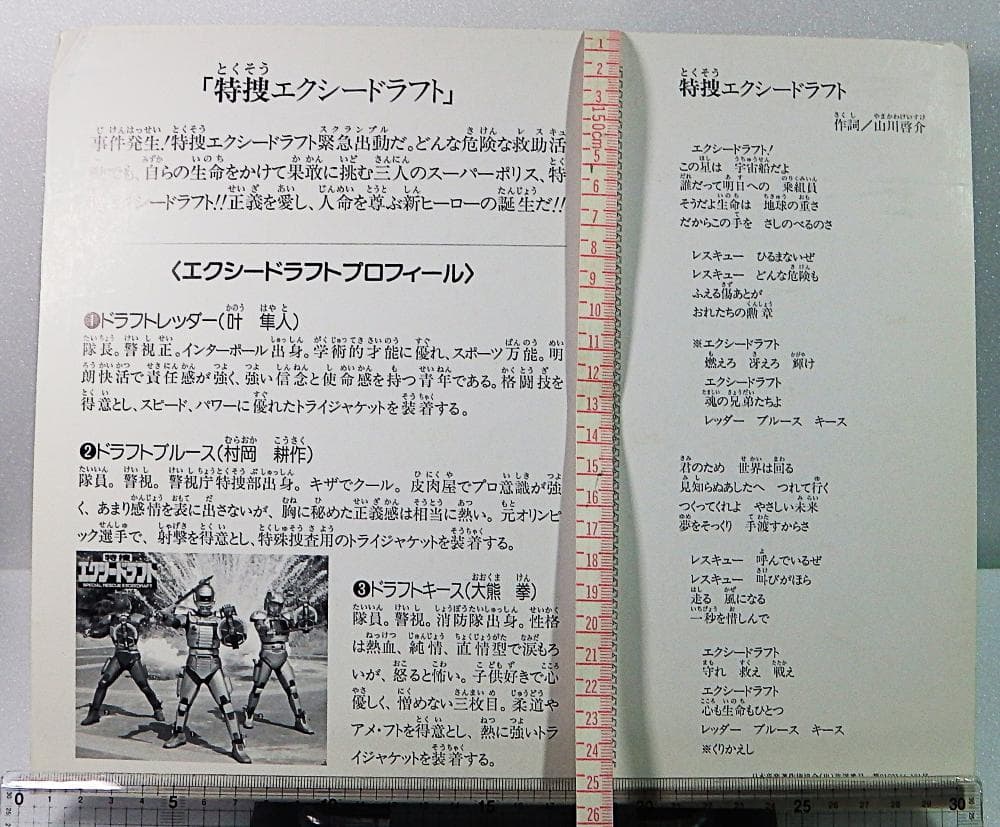 「特捜エクシードラフト」
事件発生!特捜エクシードラフト緊急出動だ。どんな危険な救助活
でも、自らの生命をかけて果敢に挑む三人のスーパーポリス、特
シードラフト!!正義を愛し、人命を尊ぶ新ヒーローの誕生だ!!
〈エクシードラフトプロフィール〉
❶ドラフトレッダー(叶 隼人)
隊長。警視正。インターポール出身。学術的才能に優れ、スポーツ万能。明
朗快活で責任感が強く、強い信念と使命感を持つ青年である。格闘技を
得意とし、スピード、パワーに優れたトライジャケットを装着する。
❷ドラフトブルース(村岡 耕作)
隊員。警視。警視庁特捜部出身。キザでクール。皮肉屋でプロ意識が強
く、あまり感情を表に出さないが、胸に秘めた正義感は相当に熱い。元オリンピ
ック選手で、射撃を得意とし、特殊捜査用のトライジャケットを装着する。
特捜
エクシードラフト
SPECIAL RESCUE EXCEEDRAFT
❸ドラフトキース(大熊 拳)
隊員。警視。消防隊出身。性格
は熱血、純情、直情型で涙もろ
いが、怒ると怖い。子供好きで心
優しく、憎めない三枚目。柔道や
アメ・フトを得意とし、熱に強いトラ
イジャケットを装着する。
特捜エクシードラフト
作詞/山川啓介
エクシードラフト!
この星は 宇宙船だよ
誰だって明日への 乗組員
そうだよ生命は 地球の重さ
だからこの手を さしのべるのさ
レスキュー ひるまないぜ
レスキュー どんな危険も
ふえる傷あとが
おれたちの勲章
※エクシードラフト
燃えろ 冴えろ 輝け
エクシードラフト
魂の兄弟たちよ
レッダー ブルース キース
君のため 世界は回る
見知らぬあしたへ つれて行く
つくってくれよ やさしい未来
夢をそっくり 手渡すからさ
レスキュー 呼んでいるぜ
レスキュー 叫びがほら
走る 風になる
一秒を惜しんで
エクシードラフト
守れ 救え 戦え
エクシードラフト
心も生命もひとつ
レッダー ブルース キース
※くりかえし
1
2
3
150cm
5
6
7
8
9
10
11
12
13
14
15
16
17
18
19
20
21
22
23
24
25
26
0 5 10 15 25 30